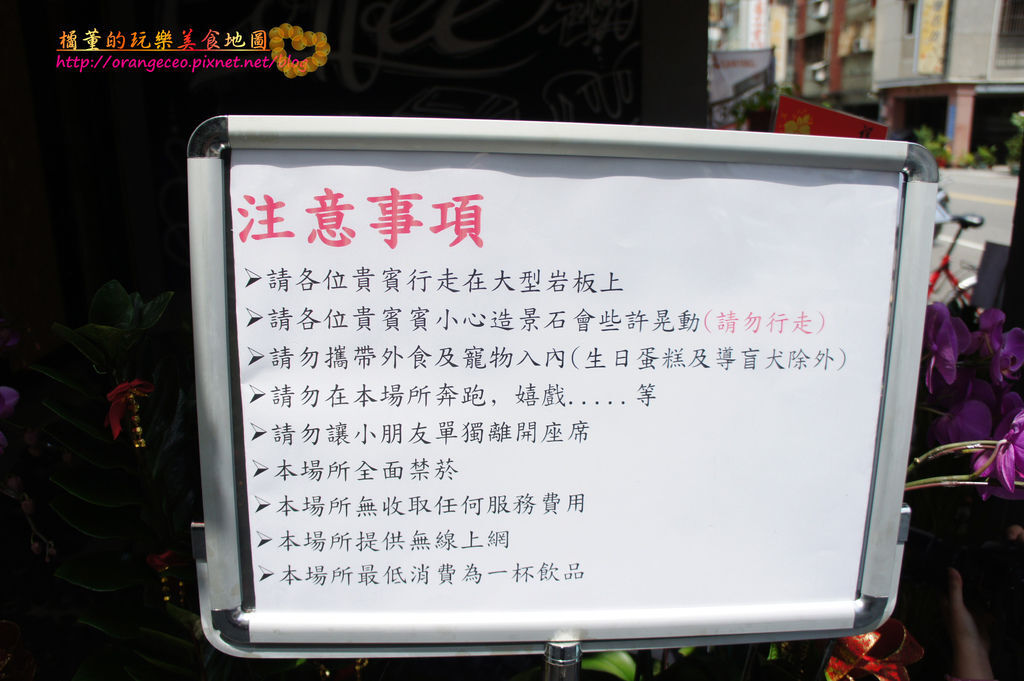 橘董的玩樂美食地圖
http://orangeceo.pixnet.net/blog
注意事項
➢請各位貴賓行走在大型岩板上
➢請各位貴賓賓小心造景石會些許晃動(請勿行走)
➢請勿攜帶外食及寵物入內(生日蛋糕及導盲犬除外)
➢請勿在本場所奔跑，嬉戲.....等
➢請勿讓小朋友單獨離開座席
➢本場所全面禁菸
➢本場所無收取任何服務費用
➢本場所提供無線上網
➢本場所最低消費為一杯飲品